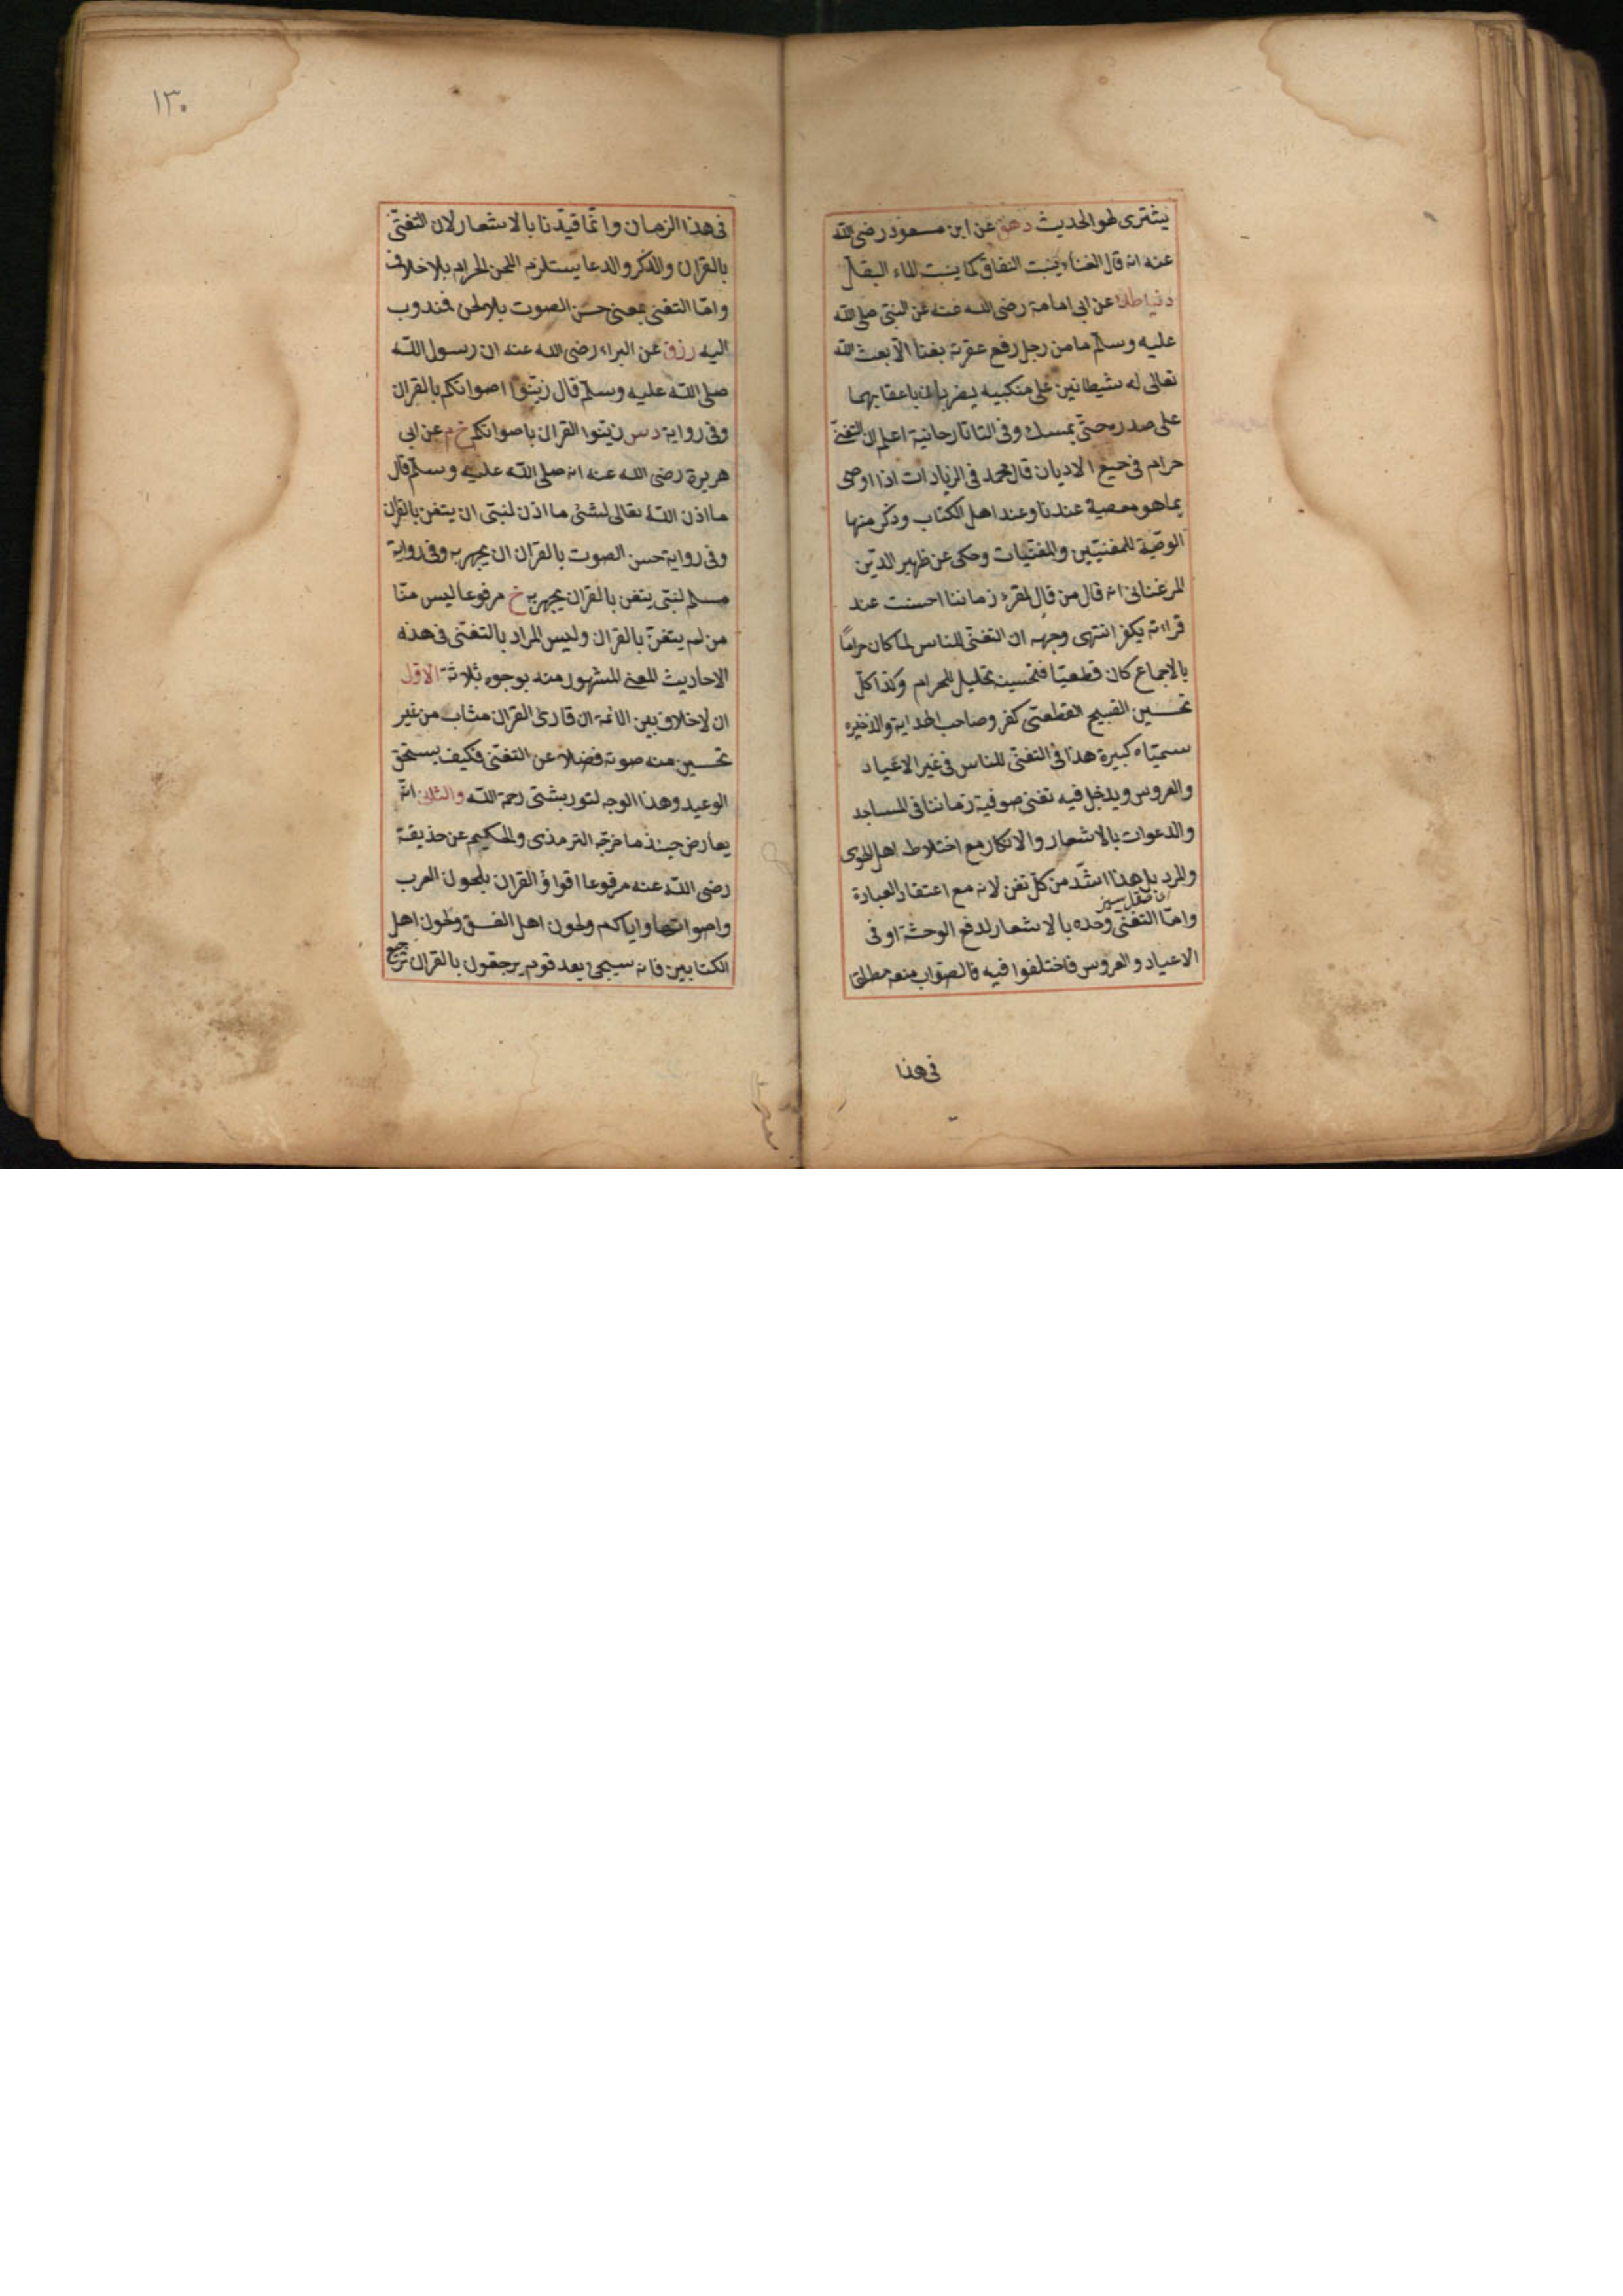 يشترى لهو الحديث دهق عن ابن مسعود رضى الله
عنه انه قال الغناء ينبت النفاق كما ينبت الماء البقل
دنيا طك عن ابى امامة رضى الله عنه عن النبى صلى الله
عليه وسلم ما من رجل رفع عقرته بغنا الا بعث الله
تعالى له شيطانين على منكبيه يضربان باعقابهما
على صدره حتى يمسك وفى التاتارخانية اعلم ان التغنى
حرام فى جميع الاديان قال محمد فى الزيادات اذا اوصى
بما هو معصية عندنا وعند اهل الكتاب وذكر منها
الوصية للمغنيين والمغنيات وحكى عن ظهير الدين
المرغنانى انه قال من قال لمقرء زماننا احسنت عند
قراءته يكفر انتهى وجهه ان التغنى للناس لما كان حراما
بالاجماع كان قطعيا فتحسينه تحليل للحرام وكذا كل
تحسين القبيح القطعى كفر وصاحب الهداية والذخيره
سمياه كبيرة هذا فى التغنى للناس فى غير الاعياد
والعروس ويدخل فيه تغنى صوفية زماننا فى المساجد
والدعوات بالاشعار والاذكار مع اختلاط اهل الهوى
والمرد بل هذا اشد من كل تغن لانه مع اعتقاد العبادة
واما التغنى وحده بالاشعار لدفع الوحشة او فى
الاعياد والعروس فاختلفوا فيه فالصواب منعه مطلقا
فى هذا
١٣٠
فى هذا الزمان وانما قيدنا بالاشعار لان التغنى
بالقران والذكر والدعا يستلزم اللحن الحرام بلا خلاف
واما التغنى بمعنى حسن الصوت بلا لحن فندوب
اليه رزق عن البراء رضى الله عنه ان رسول الله
صلى الله عليه وسلم قال زينوا اصواتكم بالقران
وفى رواية دس زينوا القران باصواتكم خ م عن ابى
هريرة رضى الله عنه انه صلى الله عليه وسلم قال
ما اذن الله تعالى لشئ ما اذن لنبى ان يتغن بالقران
وفى رواية حسن الصوت بالقران ان يجهر به وفى رواية
مسلم لنبى يتغن بالقران يجهر به خ مرفوعا ليس منا
من لم يتغن بالقران وليس المراد بالتغنى فى هذه
الاحاديث المعنى المشهور منه بوجوه ثلاثة الاول
ان لا خلاف بين الائمة ان قارئ القران مثاب من غير
تحسين منه صوته فضلا عن التغنى فكيف يستحق
الوعيد وهذا الوجه لتوربشتى رحمة الله والثانى انه
يعارض حينئذ ما خرجه الترمذى والحكيم عن حذيفة
رضى الله عنه مرفوعا اقراؤ القران بلحون العرب
واصواتها واياكم ولحون اهل الفسق ولحون اهل
الكتابين فانه سيجئ بعد قوم يرجعون بالقران ترجيع